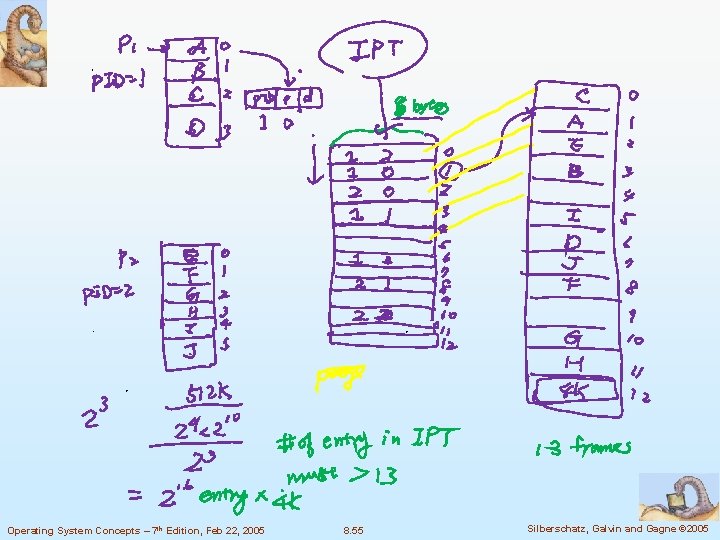 P1
PID=1
A 0
B 1
C 2
D 3
Pid P d
1 0
IPT
8 bytes
1 2 0
1 0 1
2 0 2
1 1 3
4
5
6
7
2 1 8
9
10
11
12
C 0
A 1
E 2
B 3
4
I 5
D 6
J 7
F 8
9
G 10
H 11
4K 12
13 frames
P2
PID=2
E 0
F 1
G 2
H 3
I 4
J 5
page
2^3
512K
2^3
= 2^16 entry × 4K
# of entry in IPT
must > 13
Operating System Concepts – 7th Edition, Feb 22, 2005
8.55
Silberschatz, Galvin and Gagne ©2005